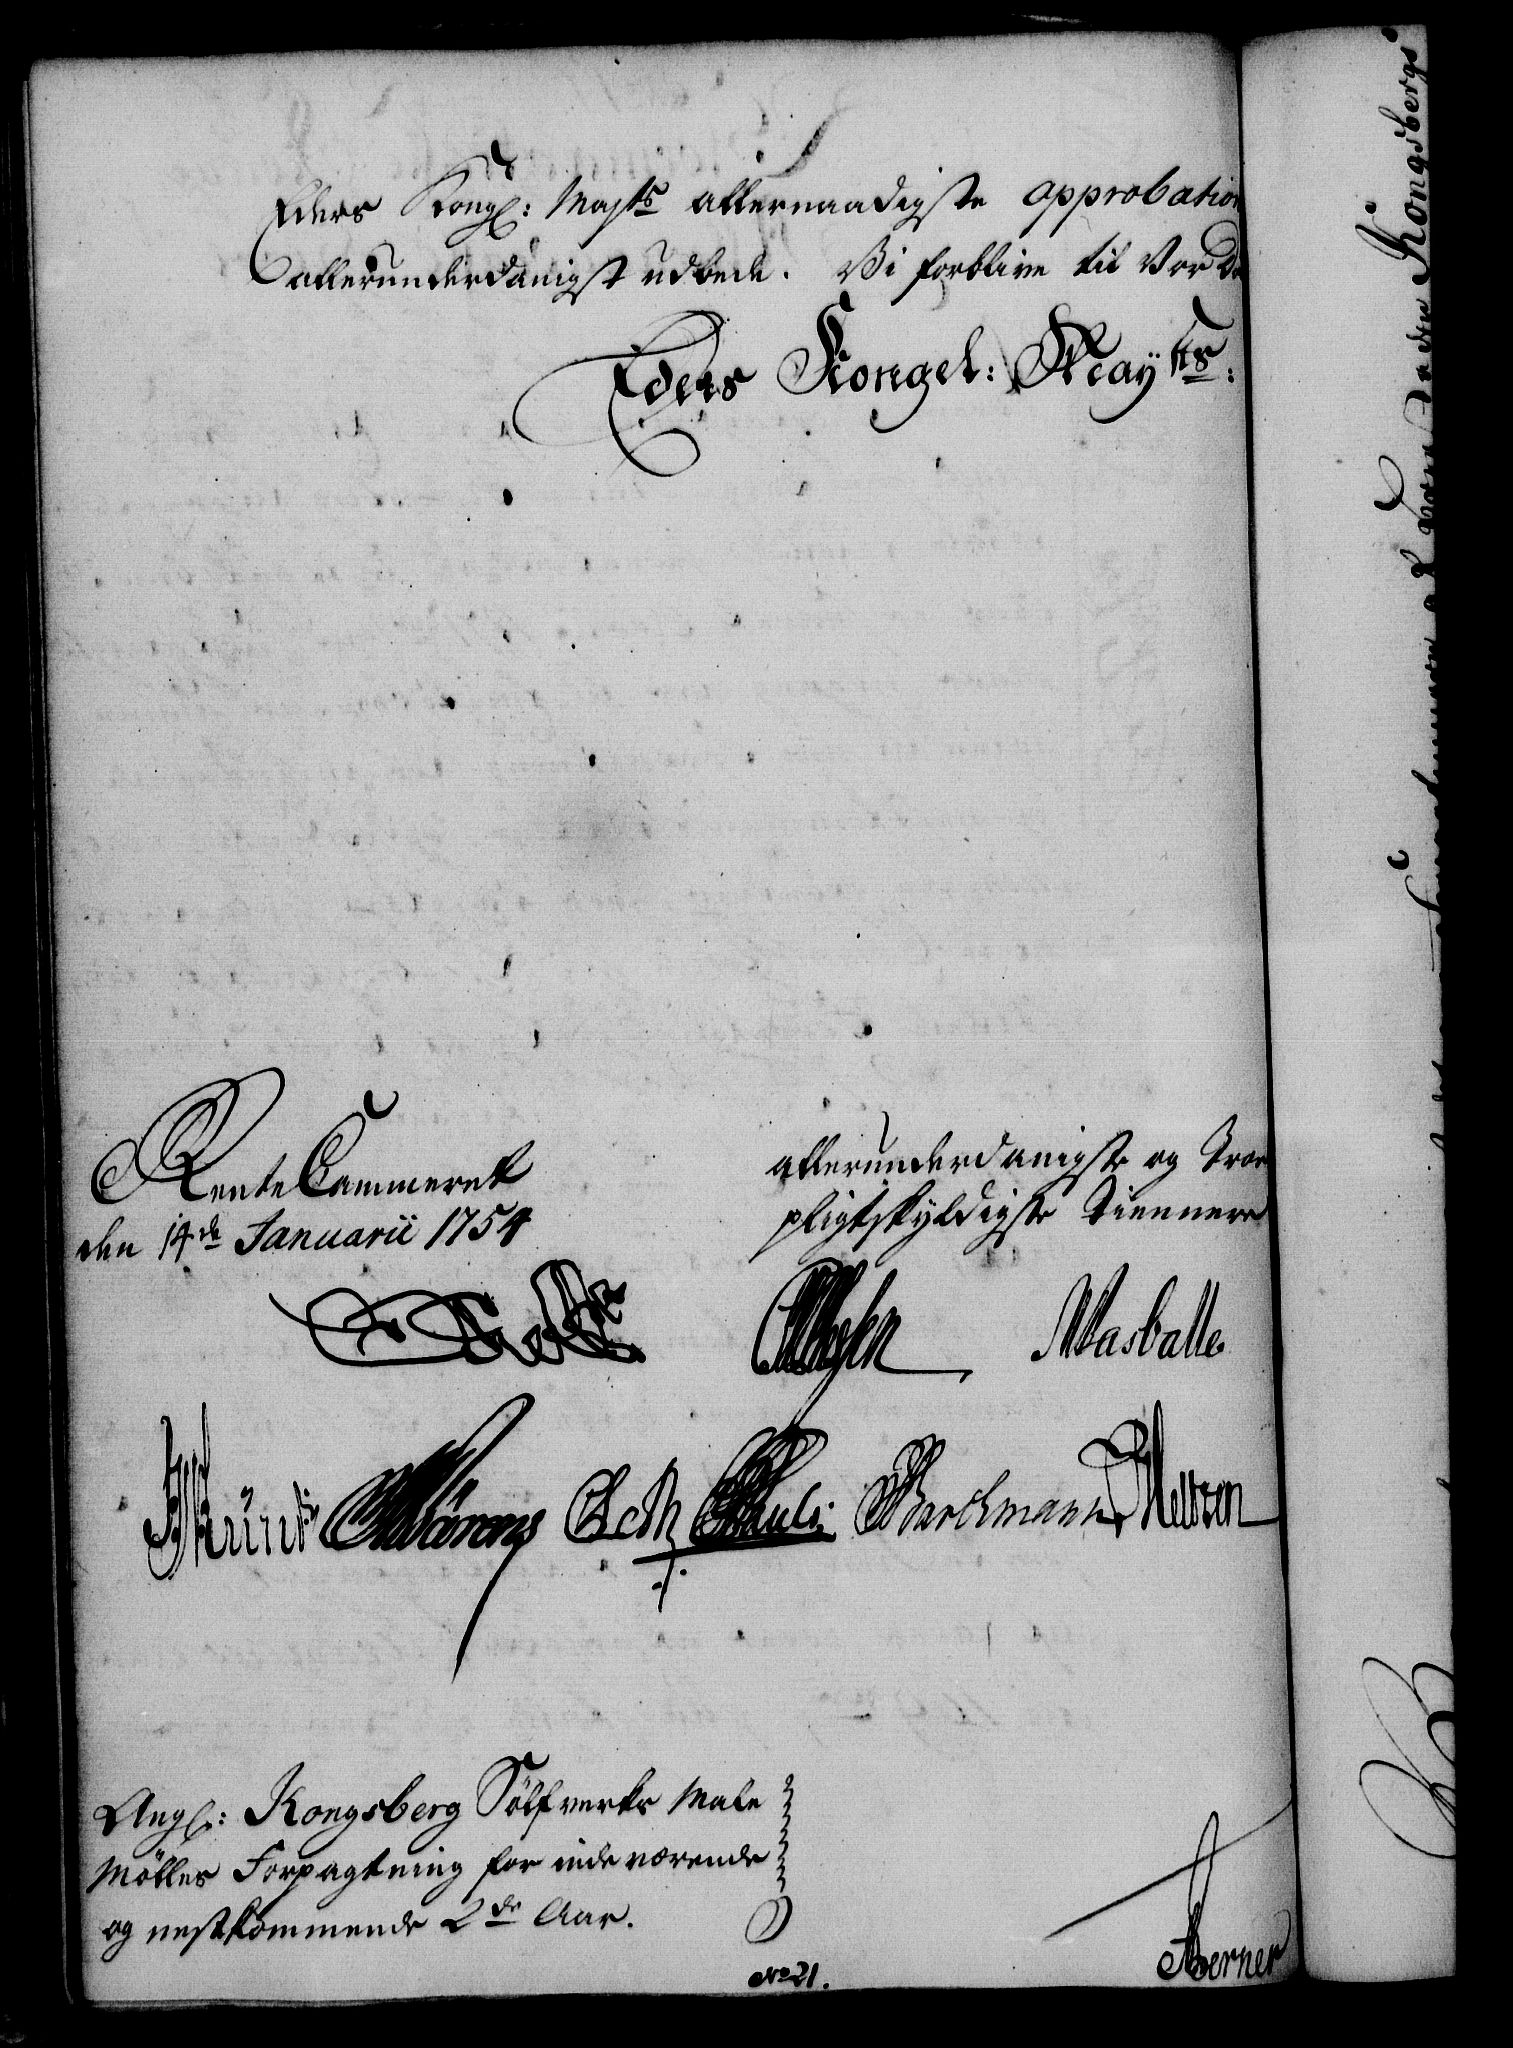 Eders Kongl: Maÿts allernaadigste approbation
allerunderdanigst udbede. Vi forblive til Vor
Eders Kongel: Maÿtts:
Rente Cammeret
den 14de Januarii 1754
allerunderdanigste og Troe
pligtskyldigste Tiennere
Wasballe
Barchmann
Angl: Kongsberg Sölfverks Male
Möllers Forpagtning for inde værende
og nestkommende 2de Aar.
No 21.
Berner
Kongsbergs